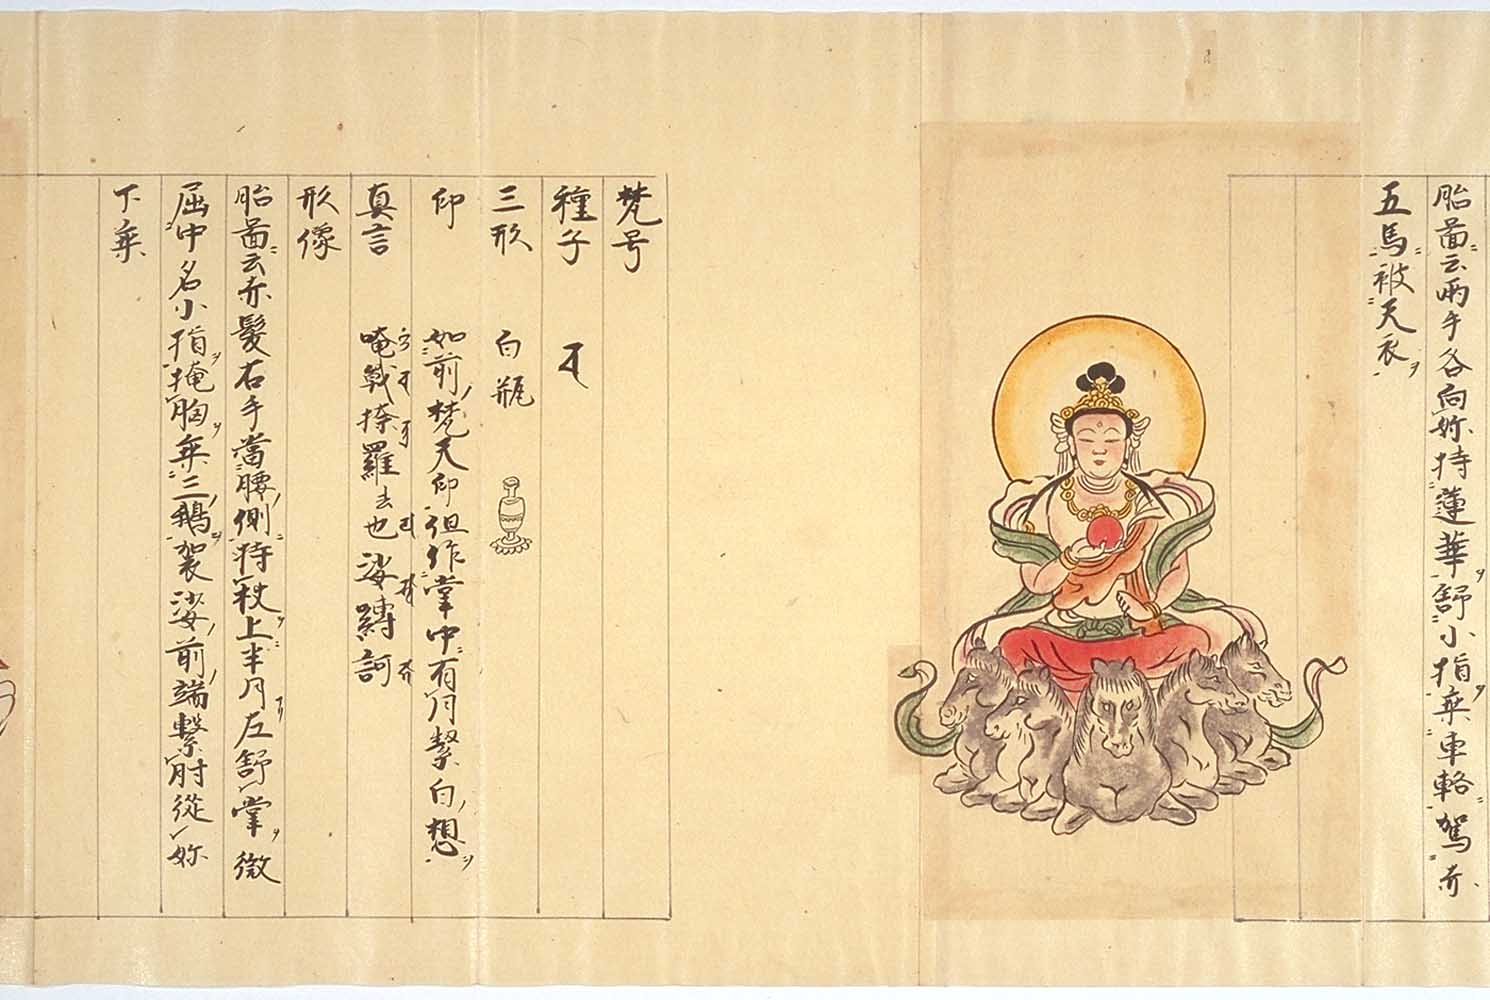 胎啚云兩手各向妳持蓮華舒小指乘車輅駕赤
五馬被天衣
梵号
種子
三形 白瓶
印 如前梵天印但作掌中有月繫白想
真言 唵戦捺羅去也娑縛訶
形像
胎啚云赤髮右手當腰側持杖上半月左舒掌微
屈中名小指掩胸乘三鵝袈娑前端繫肘從妳
下乘